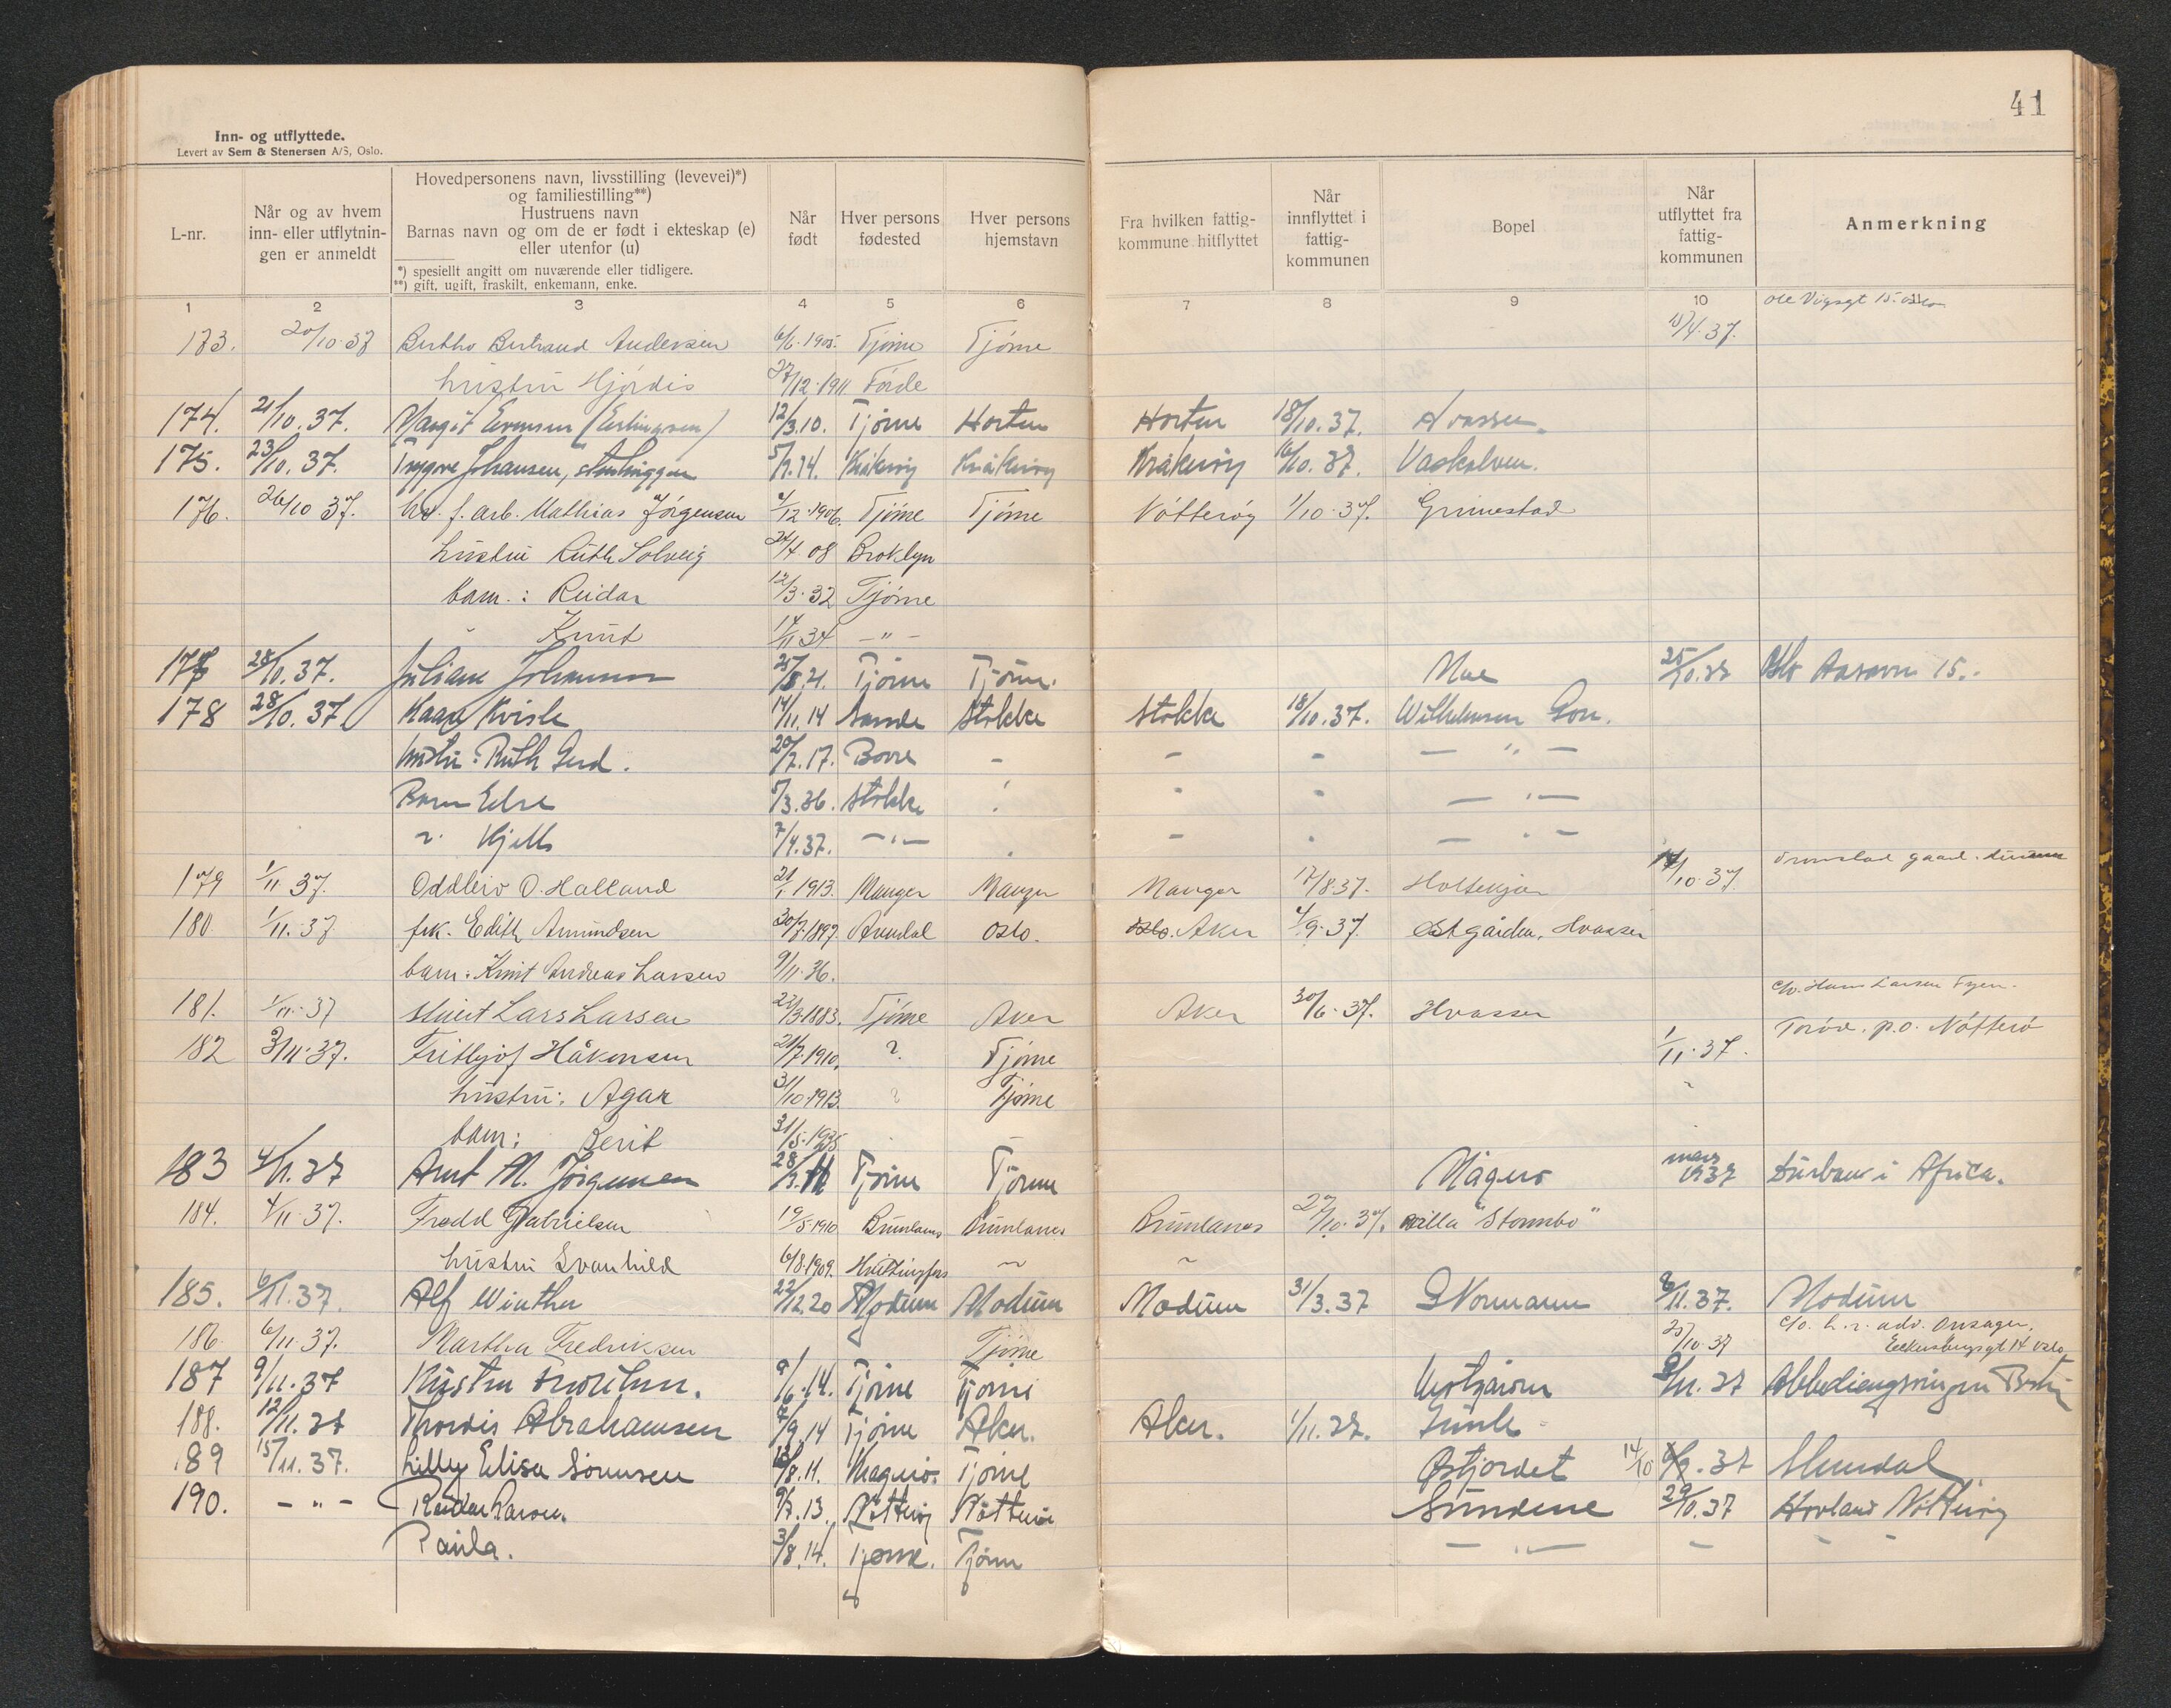 41
Inn- og utflyttede.
Levert av Sem & Stenersen A/S, Oslo.
L-nr.
Når og av hvem inn- eller utflytnin-gen er anmeldt
Hovedpersonens navn, livsstilling (levevei)*)
og familiestilling**)
Hustruens navn
Barnas navn og om de er født i ekteskap (e)
eller utenfor (u)
*) spesiellt angitt om nuværende eller tidligere.
**) gift, ugift, fraskilt, enkemann, enke.
Når født
Hver persons fødested
Hver persons hjemstavn
Fra hvilken fattig-kommune hitflyttet
Når innflyttet i fattig-kommunen
Bopel
Når utflyttet fra fattig-kommunen
Anmerkning
1 2 3 4 5 6 7 8 9 10
173. 20/10.37 Bertho Bertrand Andersen 6/6.1905. Tjøme Tjøme 15/4.37.
hustru Hjørdis 27/12.1911 Førde
174. 21/10.37. Margit Evensen (Erlingsen) 12/3.10. Tjøme Horten Horten 18/10.37. Hvasser.
175. 23/10.37. Trygve Johansen, Kråkerøy Kråkerøy Kråkerøy 16/10.37. Vaskalven.
176. 26/10 37. hv. f. arb. Mathias Jørgensen 4/12.1906. Tjøme Tjøme Nøtterøy 1/10.37. Grimestad
hustru Ruth Solveig 24/4.08 Broklyn
barn.: Reidar 12/3.32 Tjøme
Knut 14/11 34 - " -
177 28/10.37. Juliane Johannsen 25/8.21. Tjøme Tjøme. Moe 25/10.37 Oslo 15.
178 28/10.37. Kaare Kvisle 14/11.14 Sande Stokke Stokke 18/10.37. Wilhelmsen
hustru: Ruth Gerd. 20/7.17. Borre - - - - " -
Barn Else 5/3.36. Stokke
Kjell 7/4.37. - " -
179 1/11 37. Oddleiv O. Halland 21/1.1913. Manger Manger Manger 17/8.37. 14/10.37.
180 1/11.37 frk. Edith Amundsen 30/7.1897. Arendal Oslo. Aker 4/9.37. Østgården, Hvasser
barn: Knut Andreas Larsen 9/11.36.
181. 1/11.37 Lars Larsen 23/3.1883. Tjøme Aker Aker 30/6.37. Hvasser c/o. Hans Larsen
182 3/11.37. Frithjof Håkonsen 21/7.1910. ? Tjøme 1/11.37. Torød. p.o. Nøtterø
hustru: Agar 31/10.1913. ? Tjøme
barn: Berit 31/5.1935
183 4/11.37 Arnt M. Jørgensen Tjøme Tjøme Magerø mars 1937 Durban i Africa.
184. 4/11.37. Fredd Gabrielsen 19/5.1910 Brunlanes Brunlanes Brunlanes 27/10.37. villa "Stornbo"
hustru Svanhild 6/8.1909.
185. 6/11.37. Alf Winther 22/12.20 Modum Modum Modum 31/3.37 Normann 6/11.37. Modum
186. 6/11.37. Martha Fredriksen Tjøme 25/10.37 c/o. h.r. adv. Onsager,
Eckersbergsgt 14 Oslo
187 9/11.37 9/6.14. Tjøme Tjøme
188. 12/11.37 Thordis Abrahamsen 7/9.14 Tjøme Aker. Aker. 1/11.37.
189 15/11.37. Lilly Elise Sørensen Magerø. Tjøme Østjordet 14/10 .37
190. - " - Reidar Larsen. 9/7.13. Nøtterøy Nøtterøy Sundene 29/10.37 Hovland Nøtterøy
Paula. 3/8.14. Tjøme. Tjøme - " - - -